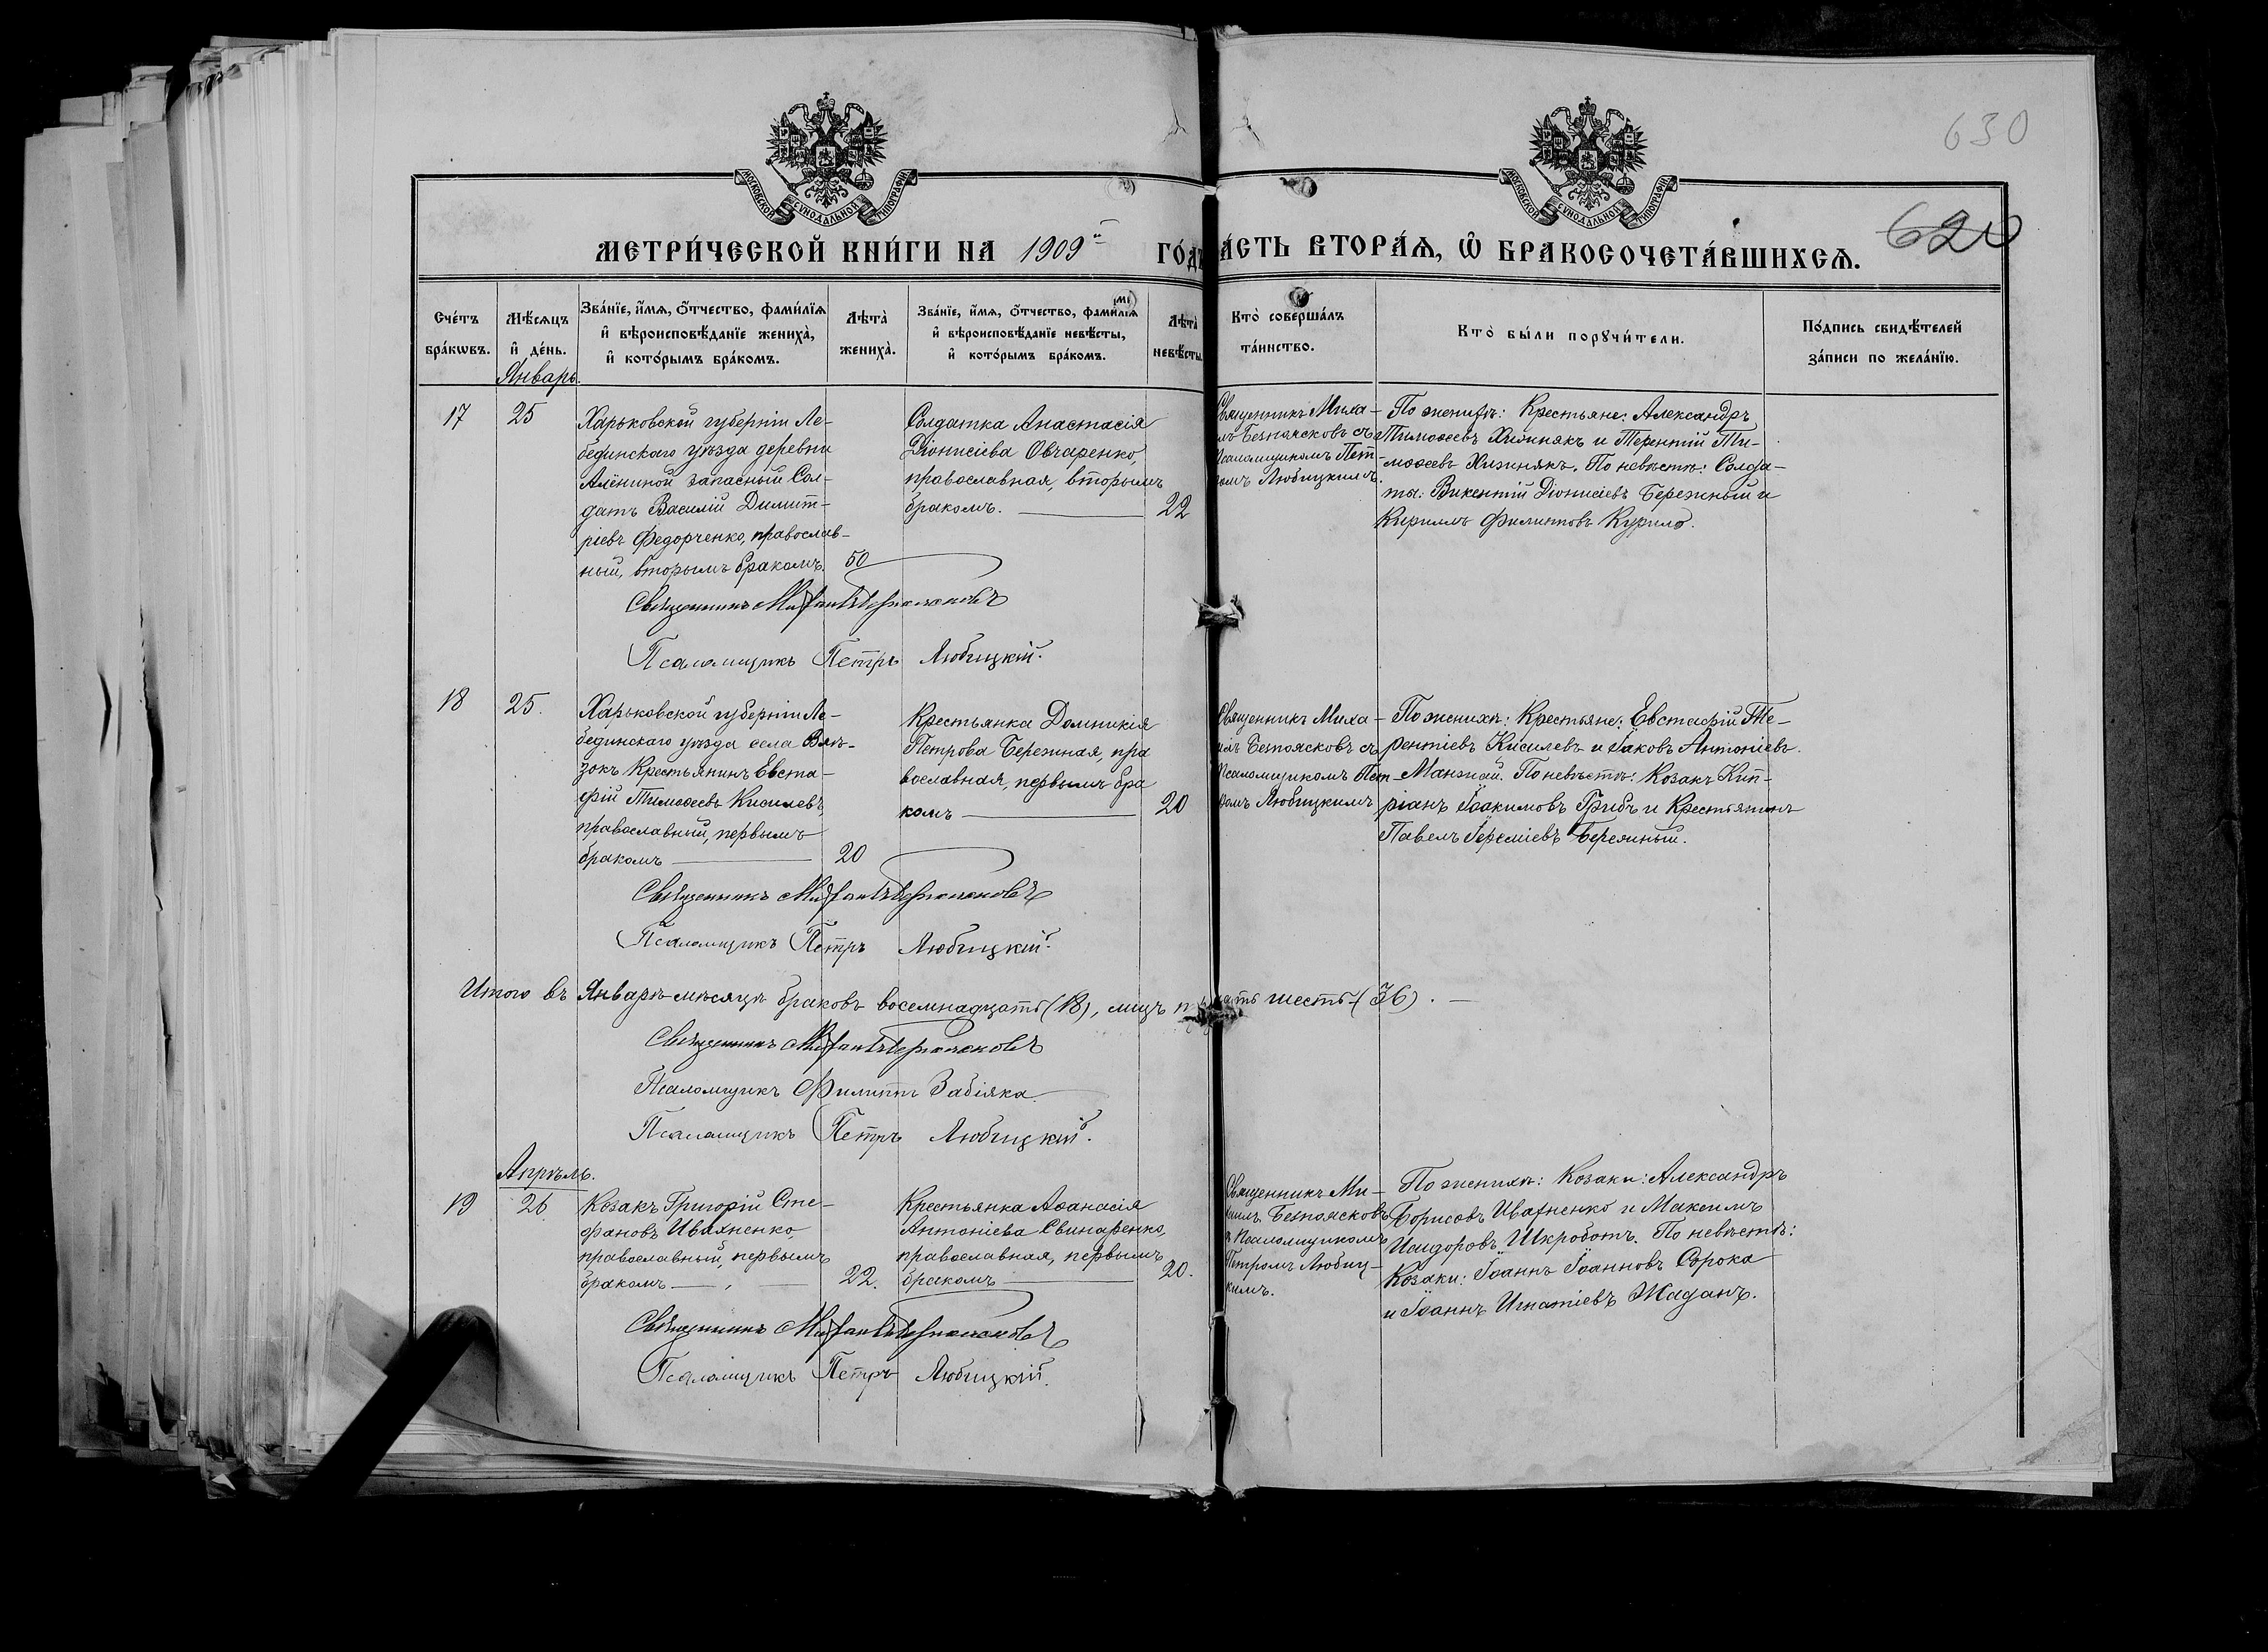 630
620
МОСКОВСКОЙ СѴНОДАЛЬНОЙ ТИПОГРАФІИ
МОСКОВСКОЙ СѴНОДАЛЬНОЙ ТИПОГРАФІИ
МЕТРИ́ЧЕСКОЙ КНИ́ГИ НА 1909й ГО́ДЪ
А́СТЬ ВТОРА́Ѧ, Ѽ БРАКОСОЧЕТА́ВШИХСѦ.
Сче́тъ бра́кωвъ.
Мѣ́сѧцъ и҆ де́нь.
Зва́нїе, и҆́мѧ, ѻ҆́тчество, фами́лїѧ и҆ вѣроисповѣ́данїе жениха̀, и҆ кото́рымъ бра́комъ.
Лѣта̀ жениха̀.
Зва́нїе, и҆́мѧ, ѻ҆́тчество, фами́лїѧ и҆ вѣроисповѣ́данїе невѣ́сты, и҆ кото́рымъ бра́комъ.
Лѣта̀ невѣ́сты
Кто̀ соверша́лъ та́инство.
Кто̀ бы́ли порꙋчи́тели.
По́дпись свидѣ́телей за́писи по жела́нїю.
Январь.
17
25
Харьковской губерніи Ле-
бединскаго уѣзда деревни
Алёниной запасный Сол-
датъ Василій Димит-
ріевъ Федорченко, православ-
ный, вторымъ бракомъ.
50
Солдатка Анастасія
Діонисіева Овчаренко,
православная, вторымъ
бракомъ.
22
Священникъ Миха-
лъ Безпоясковъ съ
Псаломщикомъ Пет-
ромъ Любицкимъ.
По женихѣ: Крестьяне: Александръ
Тимоѳеевъ Хижнякъ и Терентій Ти-
моѳеевъ Хижнякъ. По невѣстѣ: Солда-
ты: Викентій Діонисіевъ Бережный и
Кириллъ Филипповъ Курило.
Священникъ Михаилъ Безпоясковъ
Псаломщикъ Петръ Любицкій.
18
25.
Харьковской губерніи Ле-
бединскаго уѣзда села Вяз-
зокъ Крестьянинъ Евста-
фій Тимоѳеевъ Киселевъ,
православный, первымъ
бракомъ
20
Крестьянка Домникія
Петрова Бережная, пра
вославная, первымъ бра
комъ
20
Священникъ Миха-
илъ Безпоясковъ съ
Псаломщикомъ Пет-
ромъ Любицкимъ
По женихѣ: Крестьяне: Евстафій Те-
рентіевъ Киселевъ и Іаковъ Антоніевъ
Манжай. По невѣстѣ: Козакъ Кип-
ріанъ Іоакимовъ Грибъ и Крестьянинъ
Павелъ Іереміевъ Бережный.
Священникъ Михаилъ Безпоясковъ
Псаломщикъ Петръ Любицкій.
Итого въ Январѣ мѣсяцѣ браковъ восемнадцать (18), лицъ шесть (36).
Священникъ Михаилъ Безпоясковъ
Псаломщикъ Филиппъ Забіяка.
Псаломщикъ Петръ Любицкій.
Апрѣль.
19
26
Козакъ Григорій Сте-
фановъ Ивахненко,
православный, первымъ
бракомъ
22.
Крестьянка Аѳанасія
Антоніева Свинаренко,
православная, первымъ
бракомъ
20.
Священникъ Ми-
хаилъ Безпоясковъ
съ Псаломщикомъ
Петромъ Любиц-
кимъ.
По женихѣ: Козаки: Александръ
Борисовъ Ивахненко и Максимъ
Исидоровъ Шкроботъ. По невѣстѣ:
Козаки: Іоаннъ Іоанновъ Сорока
и Іоаннъ Игнатіевъ Жаданъ.
Священникъ Михаилъ Безпоясковъ
Псаломщикъ Петръ Любицкій.